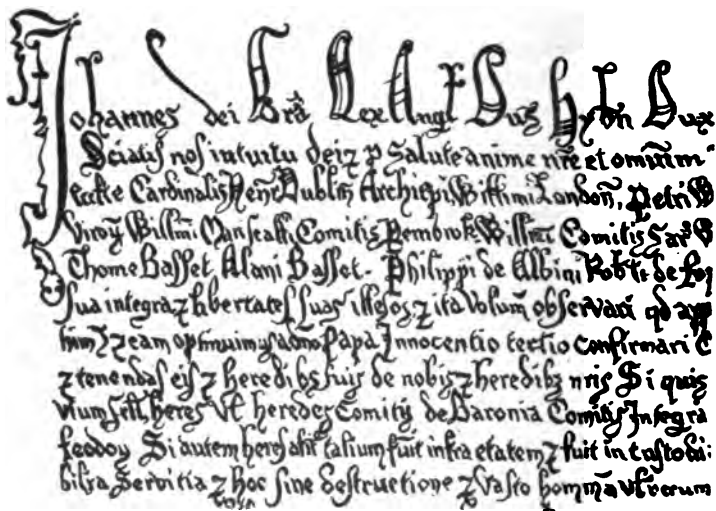 Johannes dei Gra Rex Angl Dns Hybn Dux
Sciatis nos intuitu dei ⁊ p Salute anime nre et omnium
eccle Cardinalis Henr Dublin Archiepi, Willimi London, Petri
viroꝝ Willmi Manscalli Comitis Pembrok Willmi Comitis Sar
Thome Basset Alani Basset. Philippi de Albini Robti de
sua integra ⁊ libertates suas illesas ⁊ ita volum observari qd app
⁊ eam optinuimus a dno Papa Innocentio tertio confirmari
⁊ tenendas eis ⁊ heredibs suis de nobis ⁊ heredibz nris Si quis
heres vl heredes Comitis de Baronia Comitis Integra
feodoꝝ Si autem heres alic talium fuit infra etatem ⁊ fuit in custodi
Servitia ⁊ hoc sine destructione ⁊ vasto hominum vl rerum